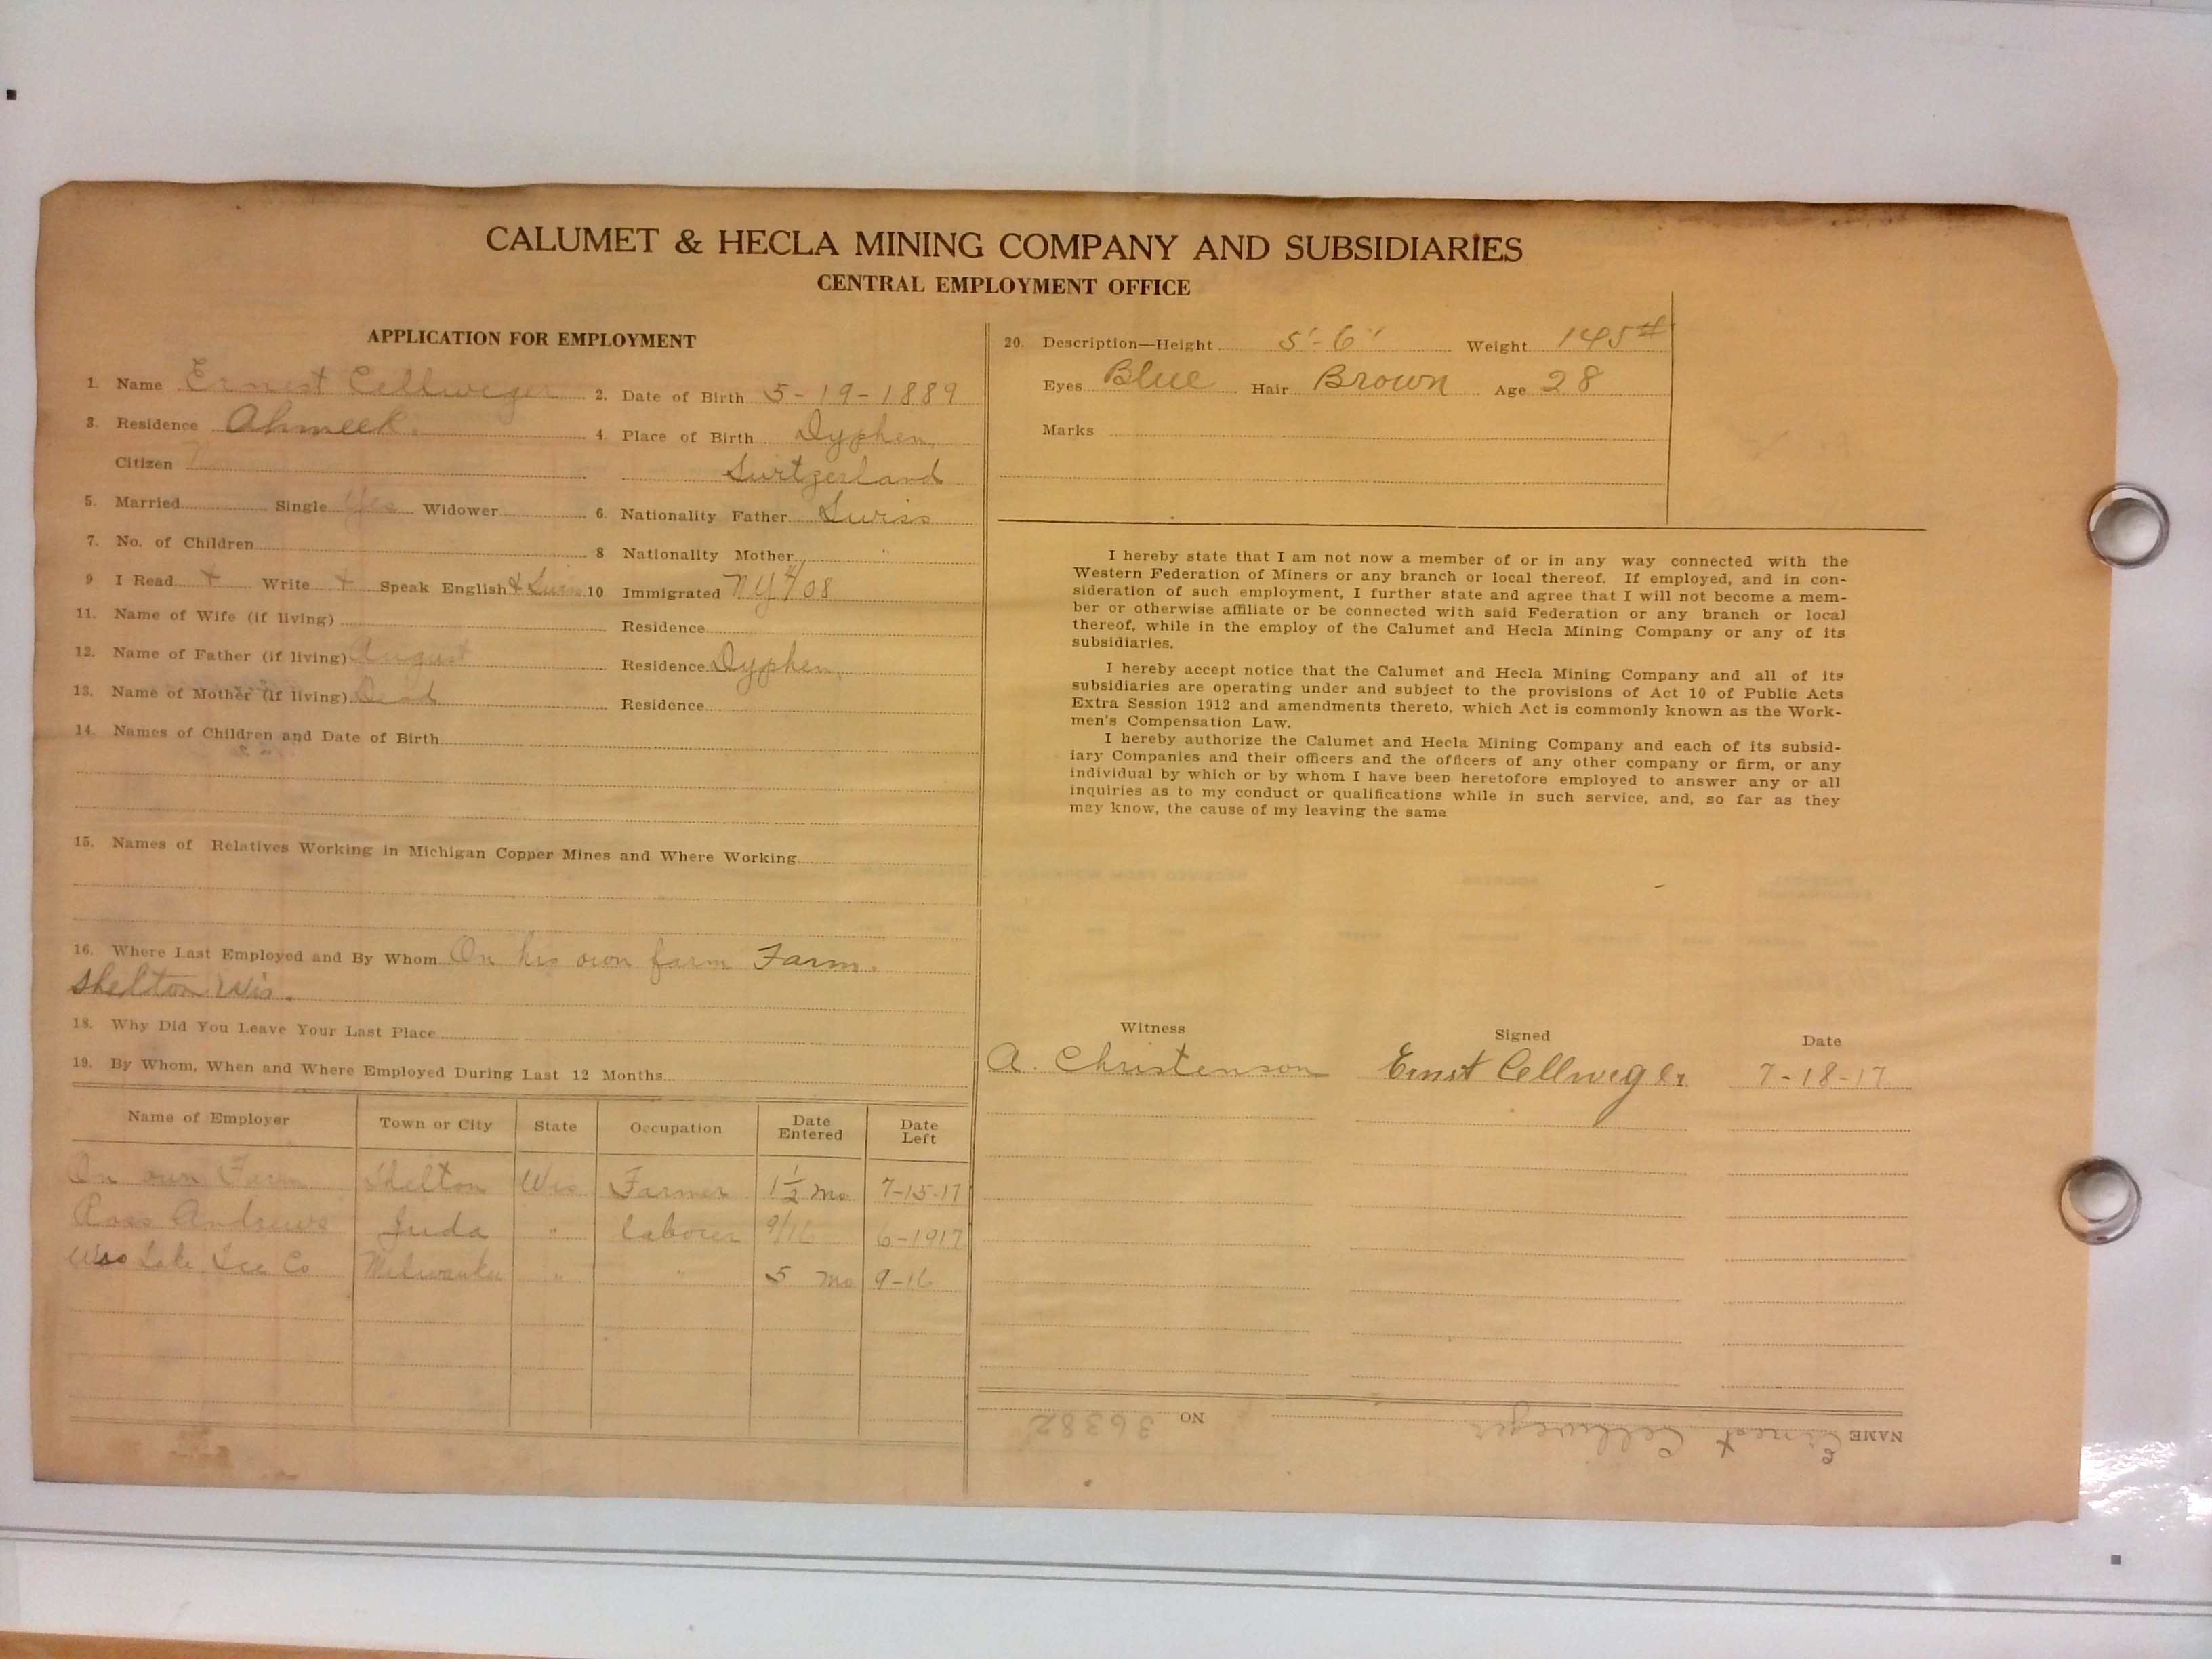 CALUMET & HECLA MINING COMPANY AND SUBSIDIARIES
CENTRAL EMPLOYMENT OFFICE
APPLICATION FOR EMPLOYMENT
1. Name Ernest Cellweger 2. Date of Birth 5-19-1889
3. Residence Ahmeek. 4. Place of Birth Dyphen,
Citizen No Switzerland
5. Married Single Yes Widower 6. Nationality Father Swiss
7. No. of Children 8 Nationality Mother "
9 I Read + Write + Speak English & Swiss 10 Immigrated NY 4/08
11. Name of Wife (if living) Residence
12. Name of Father (if living) August Residence Dyphen,
13. Name of Mother (if living) Dead Residence
14. Names of Children and Date of Birth
15. Names of Relatives Working in Michigan Copper Mines and Where Working
16. Where Last Employed and By Whom On his own farm Farm.
Shelton Wis.
18. Why Did You Leave Your Last Place
19. By Whom, When and Where Employed During Last 12 Months
Name of Employer Town or City State Occupation Date Entered Date Left
On own Farm Shelton Wis Farmer 1½ Mo 7-15-17
Ross Andrews Juda " laborer 9/16 6-1917
Wis Lake Ice Co Milwaukee " " 5 Mo 9-16
20. Description—Height 5'-6" Weight 145#
Eyes Blue Hair Brown Age 28
Marks
I hereby state that I am not now a member of or in any way connected with the
Western Federation of Miners or any branch or local thereof. If employed, and in con-
sideration of such employment, I further state and agree that I will not become a mem-
ber or otherwise affiliate or be connected with said Federation or any branch or local
thereof, while in the employ of the Calumet and Hecla Mining Company or any of its
subsidiaries.
I hereby accept notice that the Calumet and Hecla Mining Company and all of its
subsidiaries are operating under and subject to the provisions of Act 10 of Public Acts
Extra Session 1912 and amendments thereto, which Act is commonly known as the Work-
men's Compensation Law.
I hereby authorize the Calumet and Hecla Mining Company and each of its subsid-
iary Companies and their officers and the officers of any other company or firm, or any
individual by which or by whom I have been heretofore employed to answer any or all
inquiries as to my conduct or qualifications while in such service, and, so far as they
may know, the cause of my leaving the same
Witness Signed Date
A. Christenson Ernst Cellweger 7-18-17
NAME Ernest Cellweger NO 36382